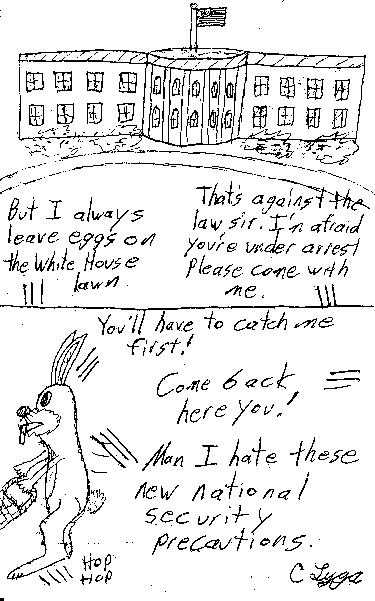 But I always
leave eggs on
the White House
lawn.
That's against the
law, sir. I'm afraid
you're under arrest
Please come with
me.
You'll have to catch me
first!
Come back
here you!
Man I hate these
new national
security
precautions.
HOP
HOP
C Lyga